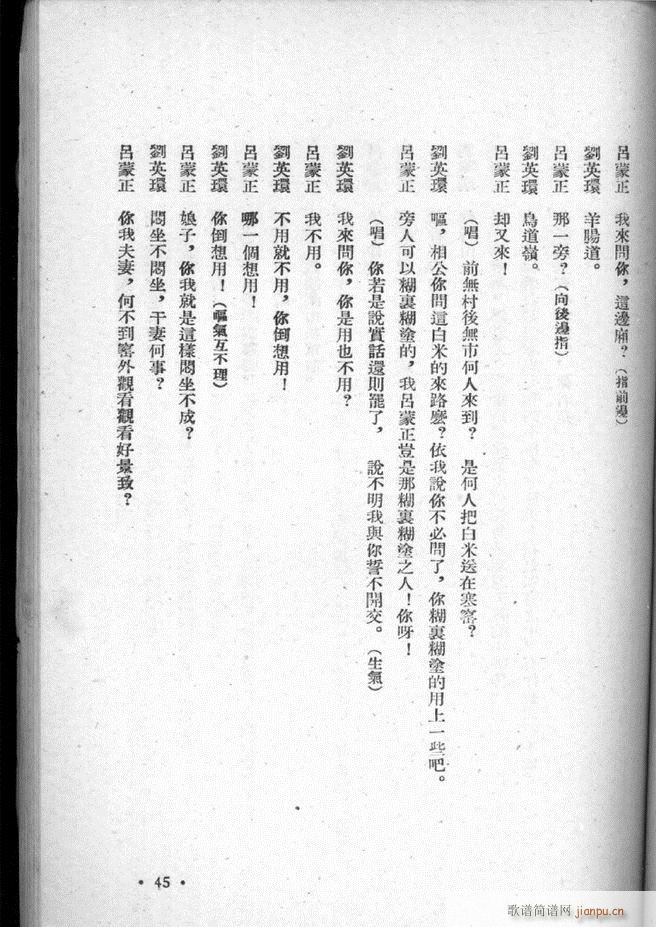 呂蒙正　我來問你，這邊廂？（指前邊）
劉英環　羊腸道。
呂蒙正　那一旁？（向後邊指）
劉英環　鳥道嶺。
呂蒙正　却又來！
（唱）前無村後無市何人來到？　是何人把白米送在寒窰？
劉英環　嘔，相公你問這白米的來路麽？依我說你不必問了，你糊裏糊塗的用上一些吧。
呂蒙正　旁人可以糊裏糊塗的，我呂蒙正豈是那糊裏糊塗之人！你呀！
（唱）你若是說實話還則罷了，　說不明我與你誓不開交。（生氣）
劉英環　我來問你，你是用也不用？
呂蒙正　我不用。
劉英環　不用就不用，你倒想用！
呂蒙正　哪一個想用！
劉英環　你倒想用！（嘔氣互不理）
呂蒙正　娘子，你我就是這樣悶坐不成？
劉英環　悶坐不悶坐，干妻何事？
呂蒙正　你我夫妻，何不到窰外觀看觀看好景致？
• 45 •
歌谱简谱网 jianpu.cn